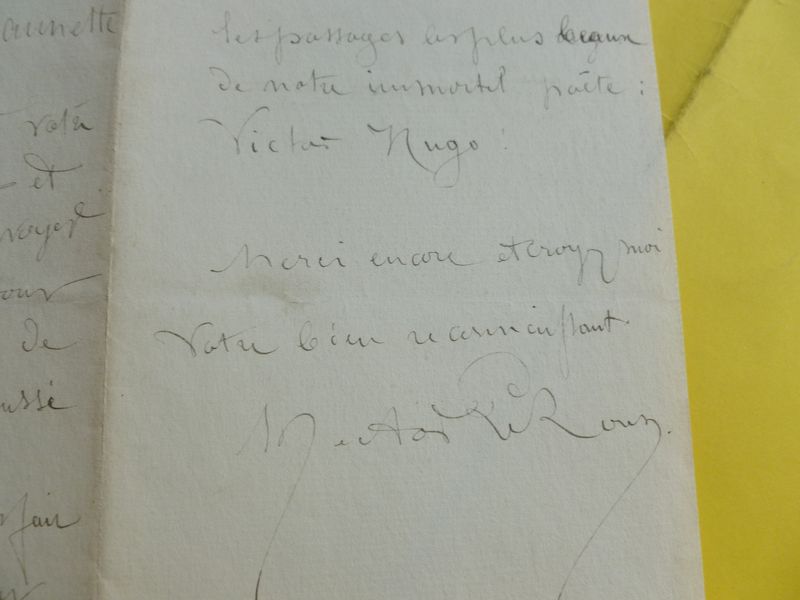 aunette
votre
et
voyer
pour
de
ussi
fair
les passages les plus beaux
de notre immortel poëte :
Victor Hugo !
Merci encore et croyez moi
Votre bien reconnaissant.
Hector Le Roux.